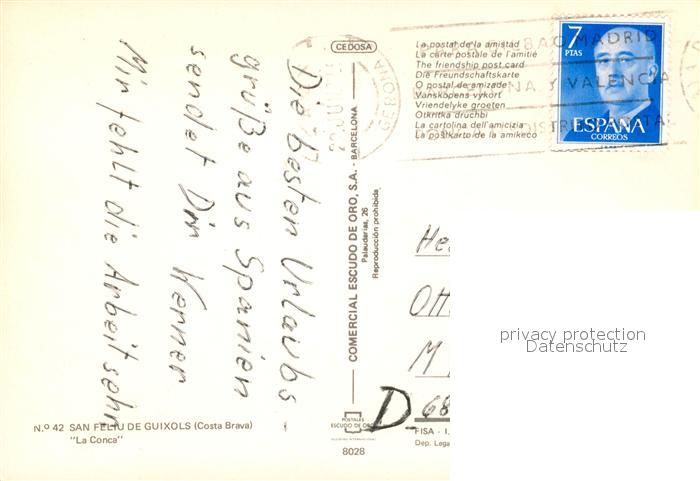 Die besten Urlaubs
grüße aus Spanien
sendet Dir Werner
Mir fehlt die Arbeit sehr
CEDOSA
COMERCIAL ESCUDO DE ORO, S.A. - BARCELONA
Palaudarias, 26
Reproducción prohibida
La postal de la amistad
La carte postale de l'amitié
The friendship post card
Die Freundschaftskarte
O postal de amizade
Vanskopens vykort
Vriendelyke groeten
Otkritka druchbi
La cartolina dell'amicizia
La postkarto de la amikeco
GERONA
MADRID
Y VALENCIA
7
PTAS
ESPAÑA
CORREOS
He
Ott
M
D 68
privacy protection
Datenschutz
N.º 42 SAN FELIU DE GUIXOLS (Costa Brava)
"La Conca"
POSTALES
ESCUDO DE ORO
8028
FISA - I.
Dep. Lega